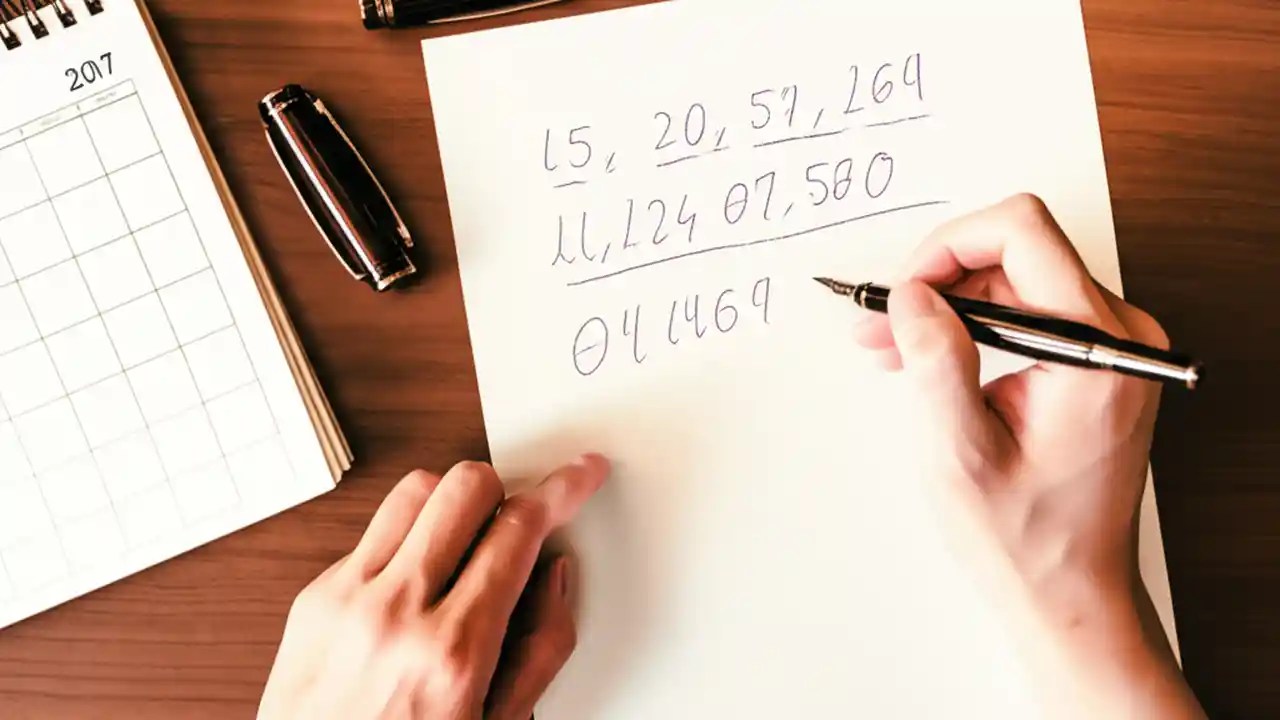 2017
15, 20, 57, 269
11,124 07,580
041469